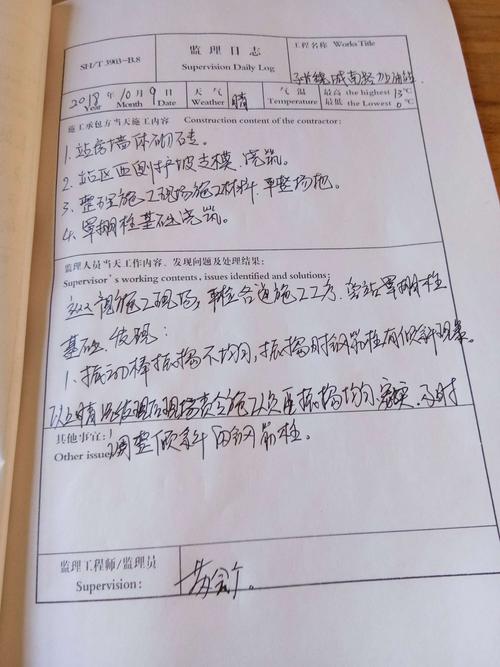 SH/T 3903-B.8
监理日志
Supervision Daily Log
工程名称 Works Title
城南路加油站
2018年 10月 9日
Year Month Date
天气 晴
Weather
气温
Temperature
最高 the highest 13℃
最低 the Lowest 0℃
施工承包方当天施工内容 Construction content of the contractor:
1. 站房墙体砌砖。
2. 站区西侧护坡支模、浇筑。
3. 整理施工现场施工材料、平整场地。
4. 罩棚柱基础浇筑。
监理人员当天工作内容、发现问题及处理结果:
Supervisor's working contents, issues identified and solutions:
巡视施工现场,平检各道施工工序、旁站罩棚柱
基础、发现:
1、振动棒振捣不均匀,振捣时钢筋柱有倾斜现象
以上情况发现后现场责令施工人员振捣均匀、密实、及时
其他事宜:
Other issue
调整倾斜的钢筋柱。
监理工程师/监理员
Supervision: